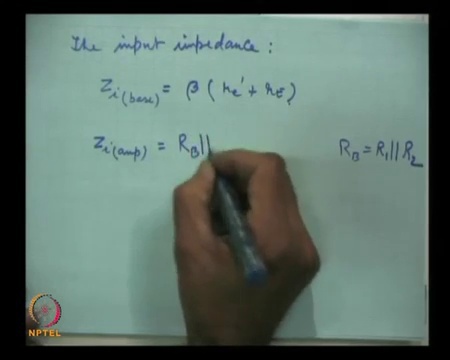 The input impedance :
Zi(base) = β ( re' + rE )
Zi(amp) = RB||
RB = R1 || R2
NPTEL